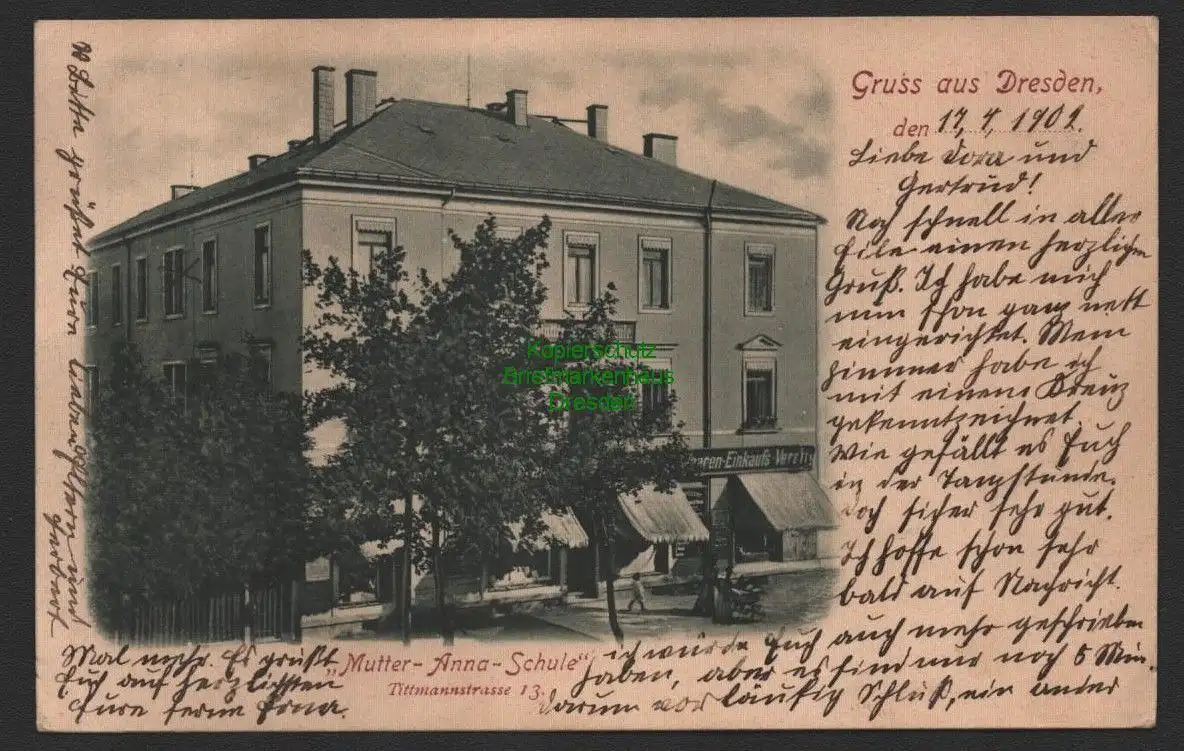 Gruss aus Dresden,
den 17, 4, 1902.
Liebe Dora und
Gertrud!
Noch schnell in aller
Eile einen herzlichen
Gruß. Ich habe mich
nun schon ganz nett
eingerichtet. Mein
Zimmer habe ich
mit einem Kreuz
gekenntzeichnet.
Wie gefällt es Euch
in der Tanzstunde.
Doch sicher sehr gut.
Ich hoffe schon sehr
bald auf Nachricht.
ich würde Euch auch mehr geschrieben
haben, aber es sind nur noch 5 Min.
darum vorläufig Schluß, ein ander
Mal mehr. Es grüßt
Euch auf herzlichsten
Eure ferne Erna.
Bitte grüßet Euren und
"Mutter-Anna-Schule"
Tittmannstrasse 13.
aaren-Einkaufs-Verein
Kopierschutz
Briefmarkenhaus
Dresden